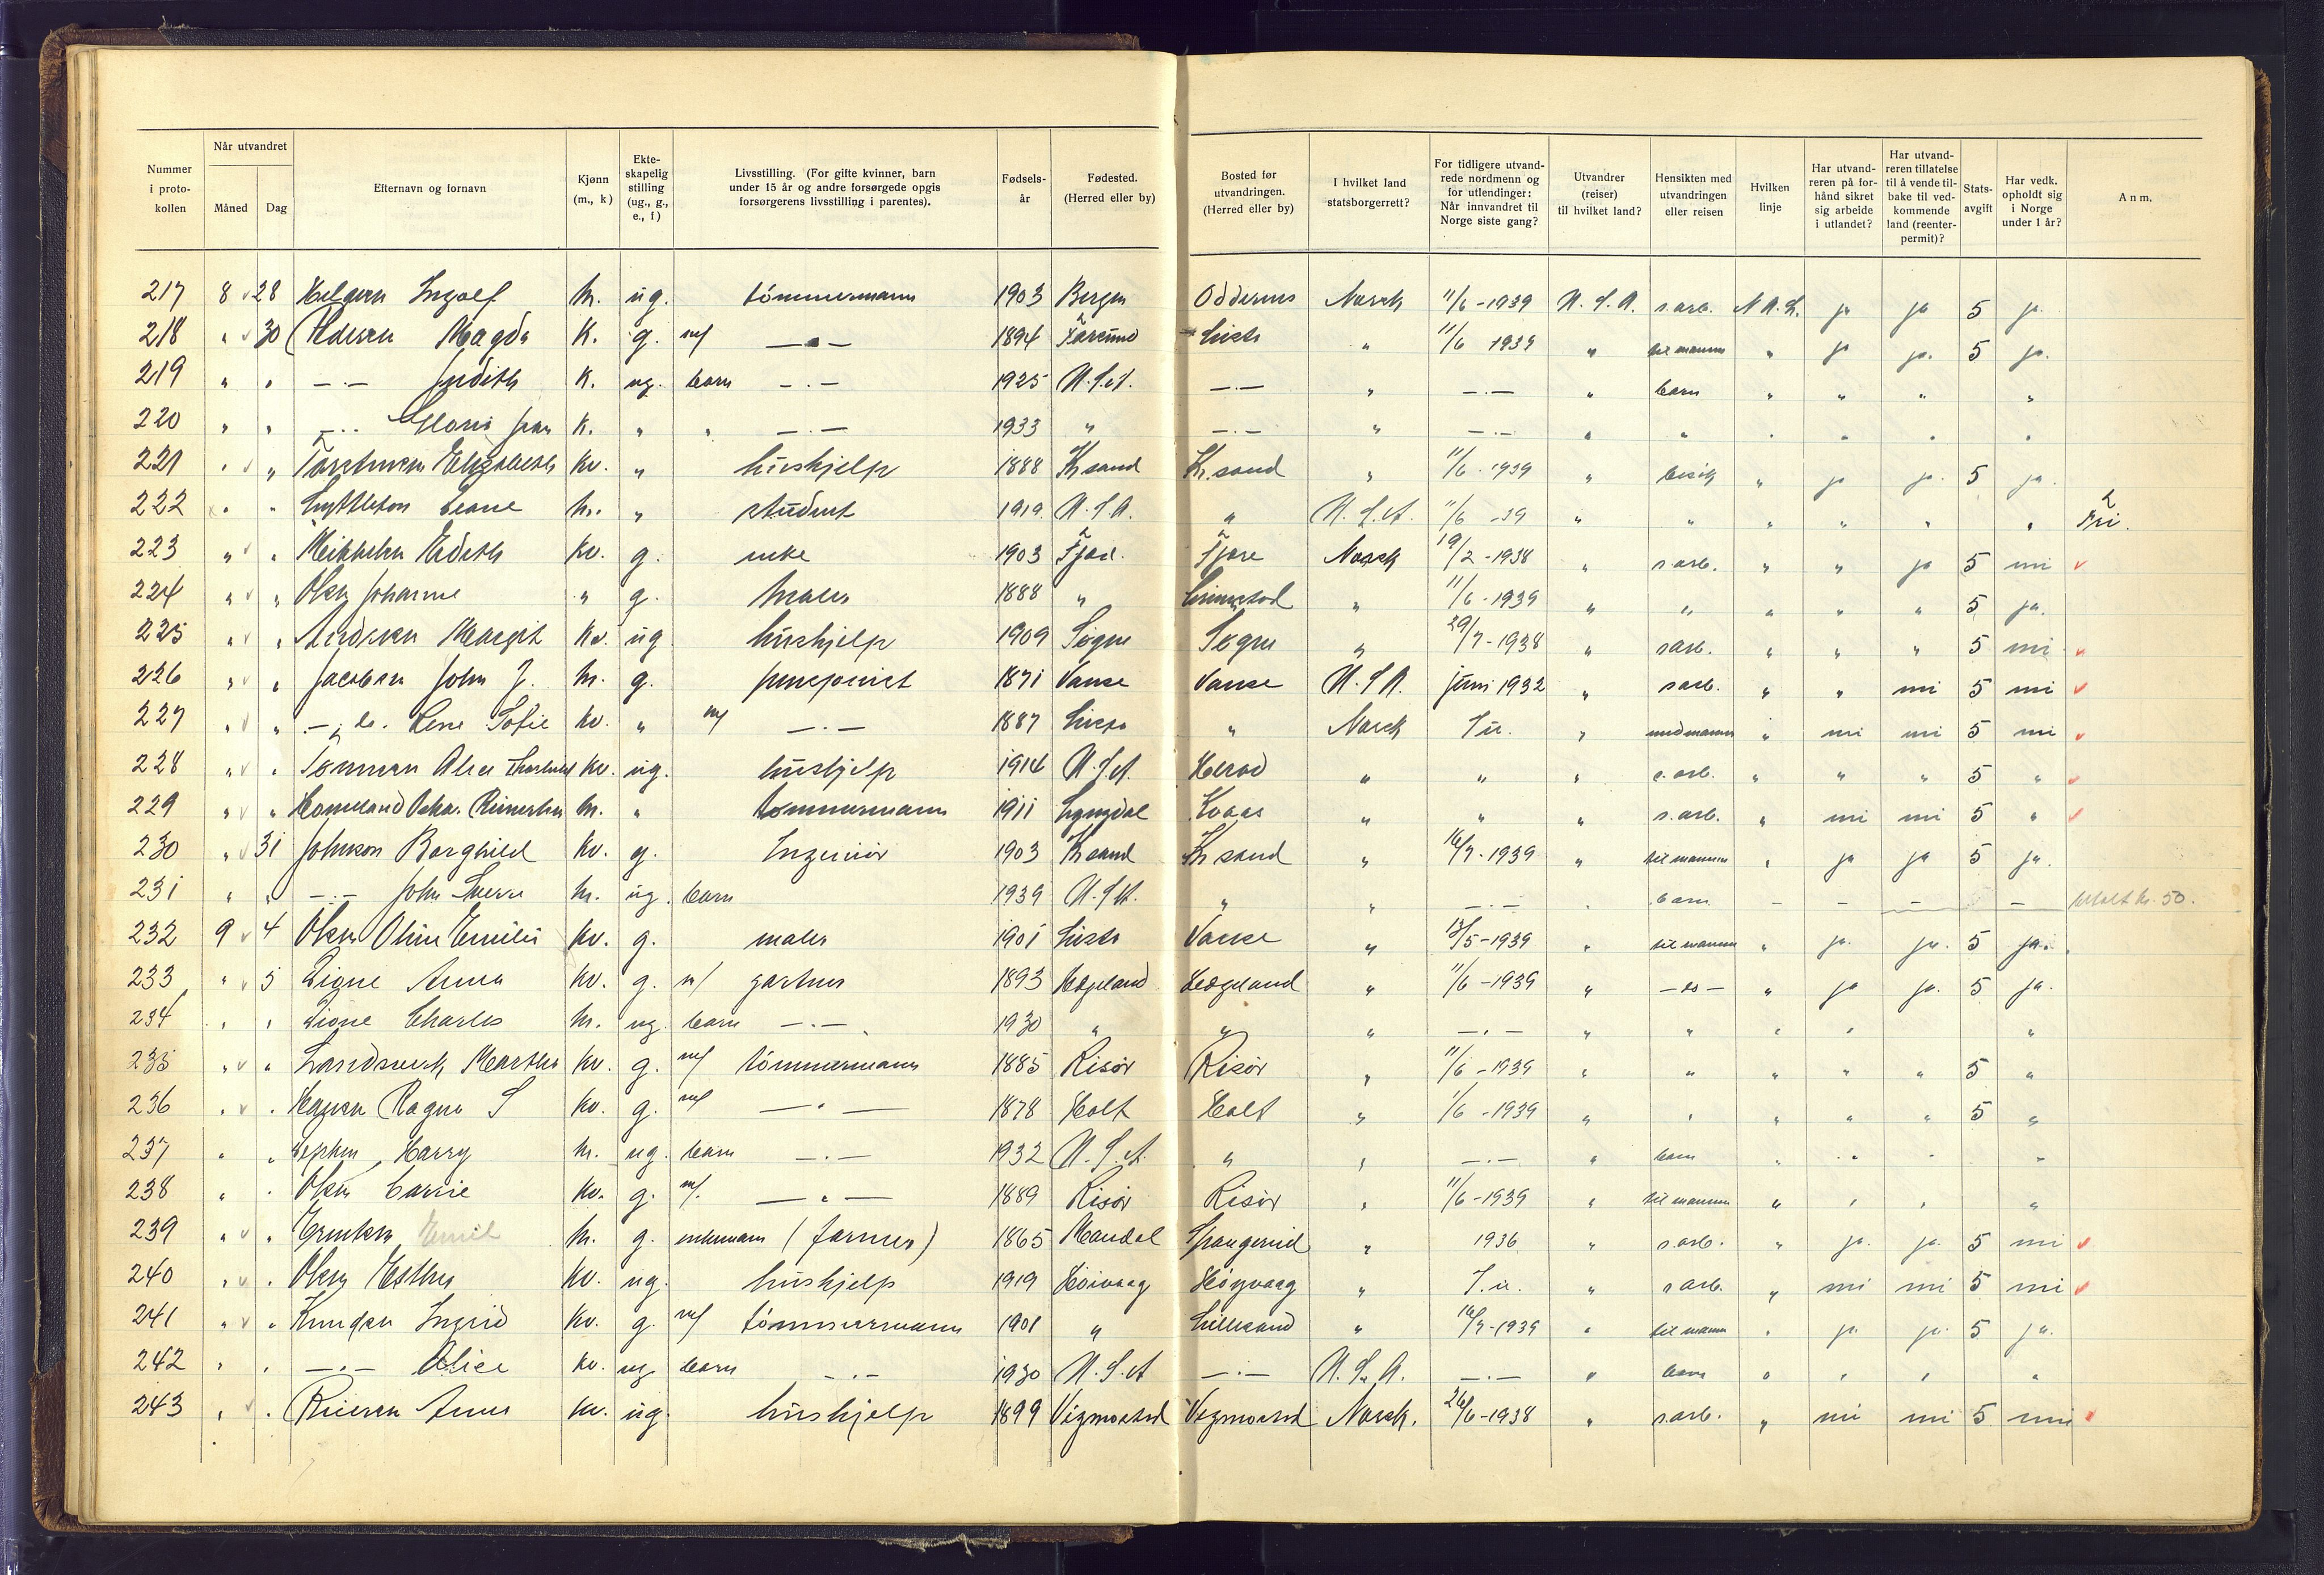 Nummer i protokollen | Når utvandret | Måned | Dag | Efternavn og fornavn | Kjønn (m., k) | Ekteskapelig stilling (ug., g., e., f) | Livsstilling. (For gifte kvinner, barn under 15 år og andre forsørgede opgis forsørgerens livsstilling i parentes). | Fødselsår | Fødested. (Herred eller by) | Bosted før utvandringen. (Herred eller by) | I hvilket land statsborgerrett? | For tidligere utvandrede nordmenn og for utlendinger: Når innvandret til Norge siste gang? | Utvandrer (reiser) til hvilket land? | Hensikten med utvandringen eller reisen | Hvilken linje | Har utvandreren på forhånd sikret sig arbeide i utlandet? | Har utvandreren tillatelse til å vende tilbake til vedkommende land (reenterpermit)? | Statsavgift | Har vedk. opholdt sig i Norge under 1 år? | Anm.
217 8 28 Ingolf m. ug. tömmermann 1903 Bergen Oddernes Norsk 11/6-1939 U.S.A. s.arb. N.A.L. ja ja 5 ja
218 " 30 Magda K. g. m/ — " — 1894 Farsund Lista " 11/6 1939 " til mannen " ja ja. 5 ja.
219 " " —.— Judith K. ug. barn —.— 1925 U.S.A. —.— " —.— " barn " " " "
220 " " —.— Gloria Jean K. " " —.— 1933 " —.— " —.— " " " " " "
221 " " Elizabeth Kv. " hüshjelp 1888 Kr.sand Kr.sand " 11/6-1939 " besök " ja ja. 5 ja.
222 " " Lyttleton m. " stüdent 1919 U.S.A. " U.S.A. 11/6 -39 " " " " " " Fri.
223 " " Edith Kv. g. 1903 Fjære Norsk 19/2-1938 " s.arb. " " ja 5 nei
224 " " Olsen Johanne " g. maler 1888 " Grimstad " 11/6-1939 " " " " " 5 ja.
225 " " Margit Kv. ug hüshjelp 1909 Søgne Søgne " 29/7-1938 " s.arb. " " " 5 nei
226 " " Jacobsen John J. m. g. 1871 Vanse Vanse U.S.A. juni 1932 " s.arb. " " nei 5 nei
227 " " Lene Sofie Kv. " m/ —.— 1887 Lista " Norsk " medmannen " nei nei 5 nei
228 " " Kv. ug. hüshjelp 1914 U.S.A. Herad " " " s.arb. " " " 5 "
229 " " m. " tömmermann 1911 Lyngdal Kvaas " " " s.arb. " nei nei 5 "
230 " 31 Johnson Borghild Kv. g. Ingeniör 1903 Kr.sand Kr.sand " 16/7-1939 " til mannen " ja ja 5 ja.
231 " " —.— John Sverre m. ug. barn 1939 U.S.A. " " —.— " barn — — — — kr. 50.
232 9 4 Olsen Kv. g. maler 1901 Lista Vanse " /5-1939 " til mannen " ja. ja. 5 ja.
233 " 5 Anna Kv. g. m/ gartner 1893 Hægeland Hægeland " 11/6-1939 " —do— " ja ja. 5 ja.
234 " " Charles m. ug. barn —.— 1930 " " " —.— " " " " "
235 " " Landsverk Martha Kv. g. m/ tömmermann 1885 Risör Risör " 11/6-1939 " " " " " 5 "
236 " " Ragna S Kv. g. m/ —.— 1878 Holt Holt " 1/6-1939 " " " " " 5 "
237 " " Harry m. ug. barn —.— 1932 U.S.A. " " —.— " barn " " " "
238 " " Olsen Carrie Kv. g. m/. —.— 1889 Risör Risör " 11/6-1939 " til mannen " " " "
239 " " Emil m. g. (farmer) 1865 Mandal Spangereid " 1936 " s.arb. " ja. ja. 5 nei
240 " " Olsen Esther Kv. ug. hüshjelp 1919 Høivaag Høyvaag " " s arb. " nei nei 5 nei
241 " " Knudsen Ingrid Kv. g. m/ tömmermann 1901 " Lillesand " 16/7-1939 " til mannen " ja. ja. 5 ja.
242 " " —.— Alice Kv. ug. barn —.— 1930 U.S.A —.— U.S.A. —.— " barn " " " "
243 " " Anna Kv. ug. hüshjelp 1899 Vigmostad Vigmostad Norsk. 26/6-1938 " s.arb. " nei nei 5 nei